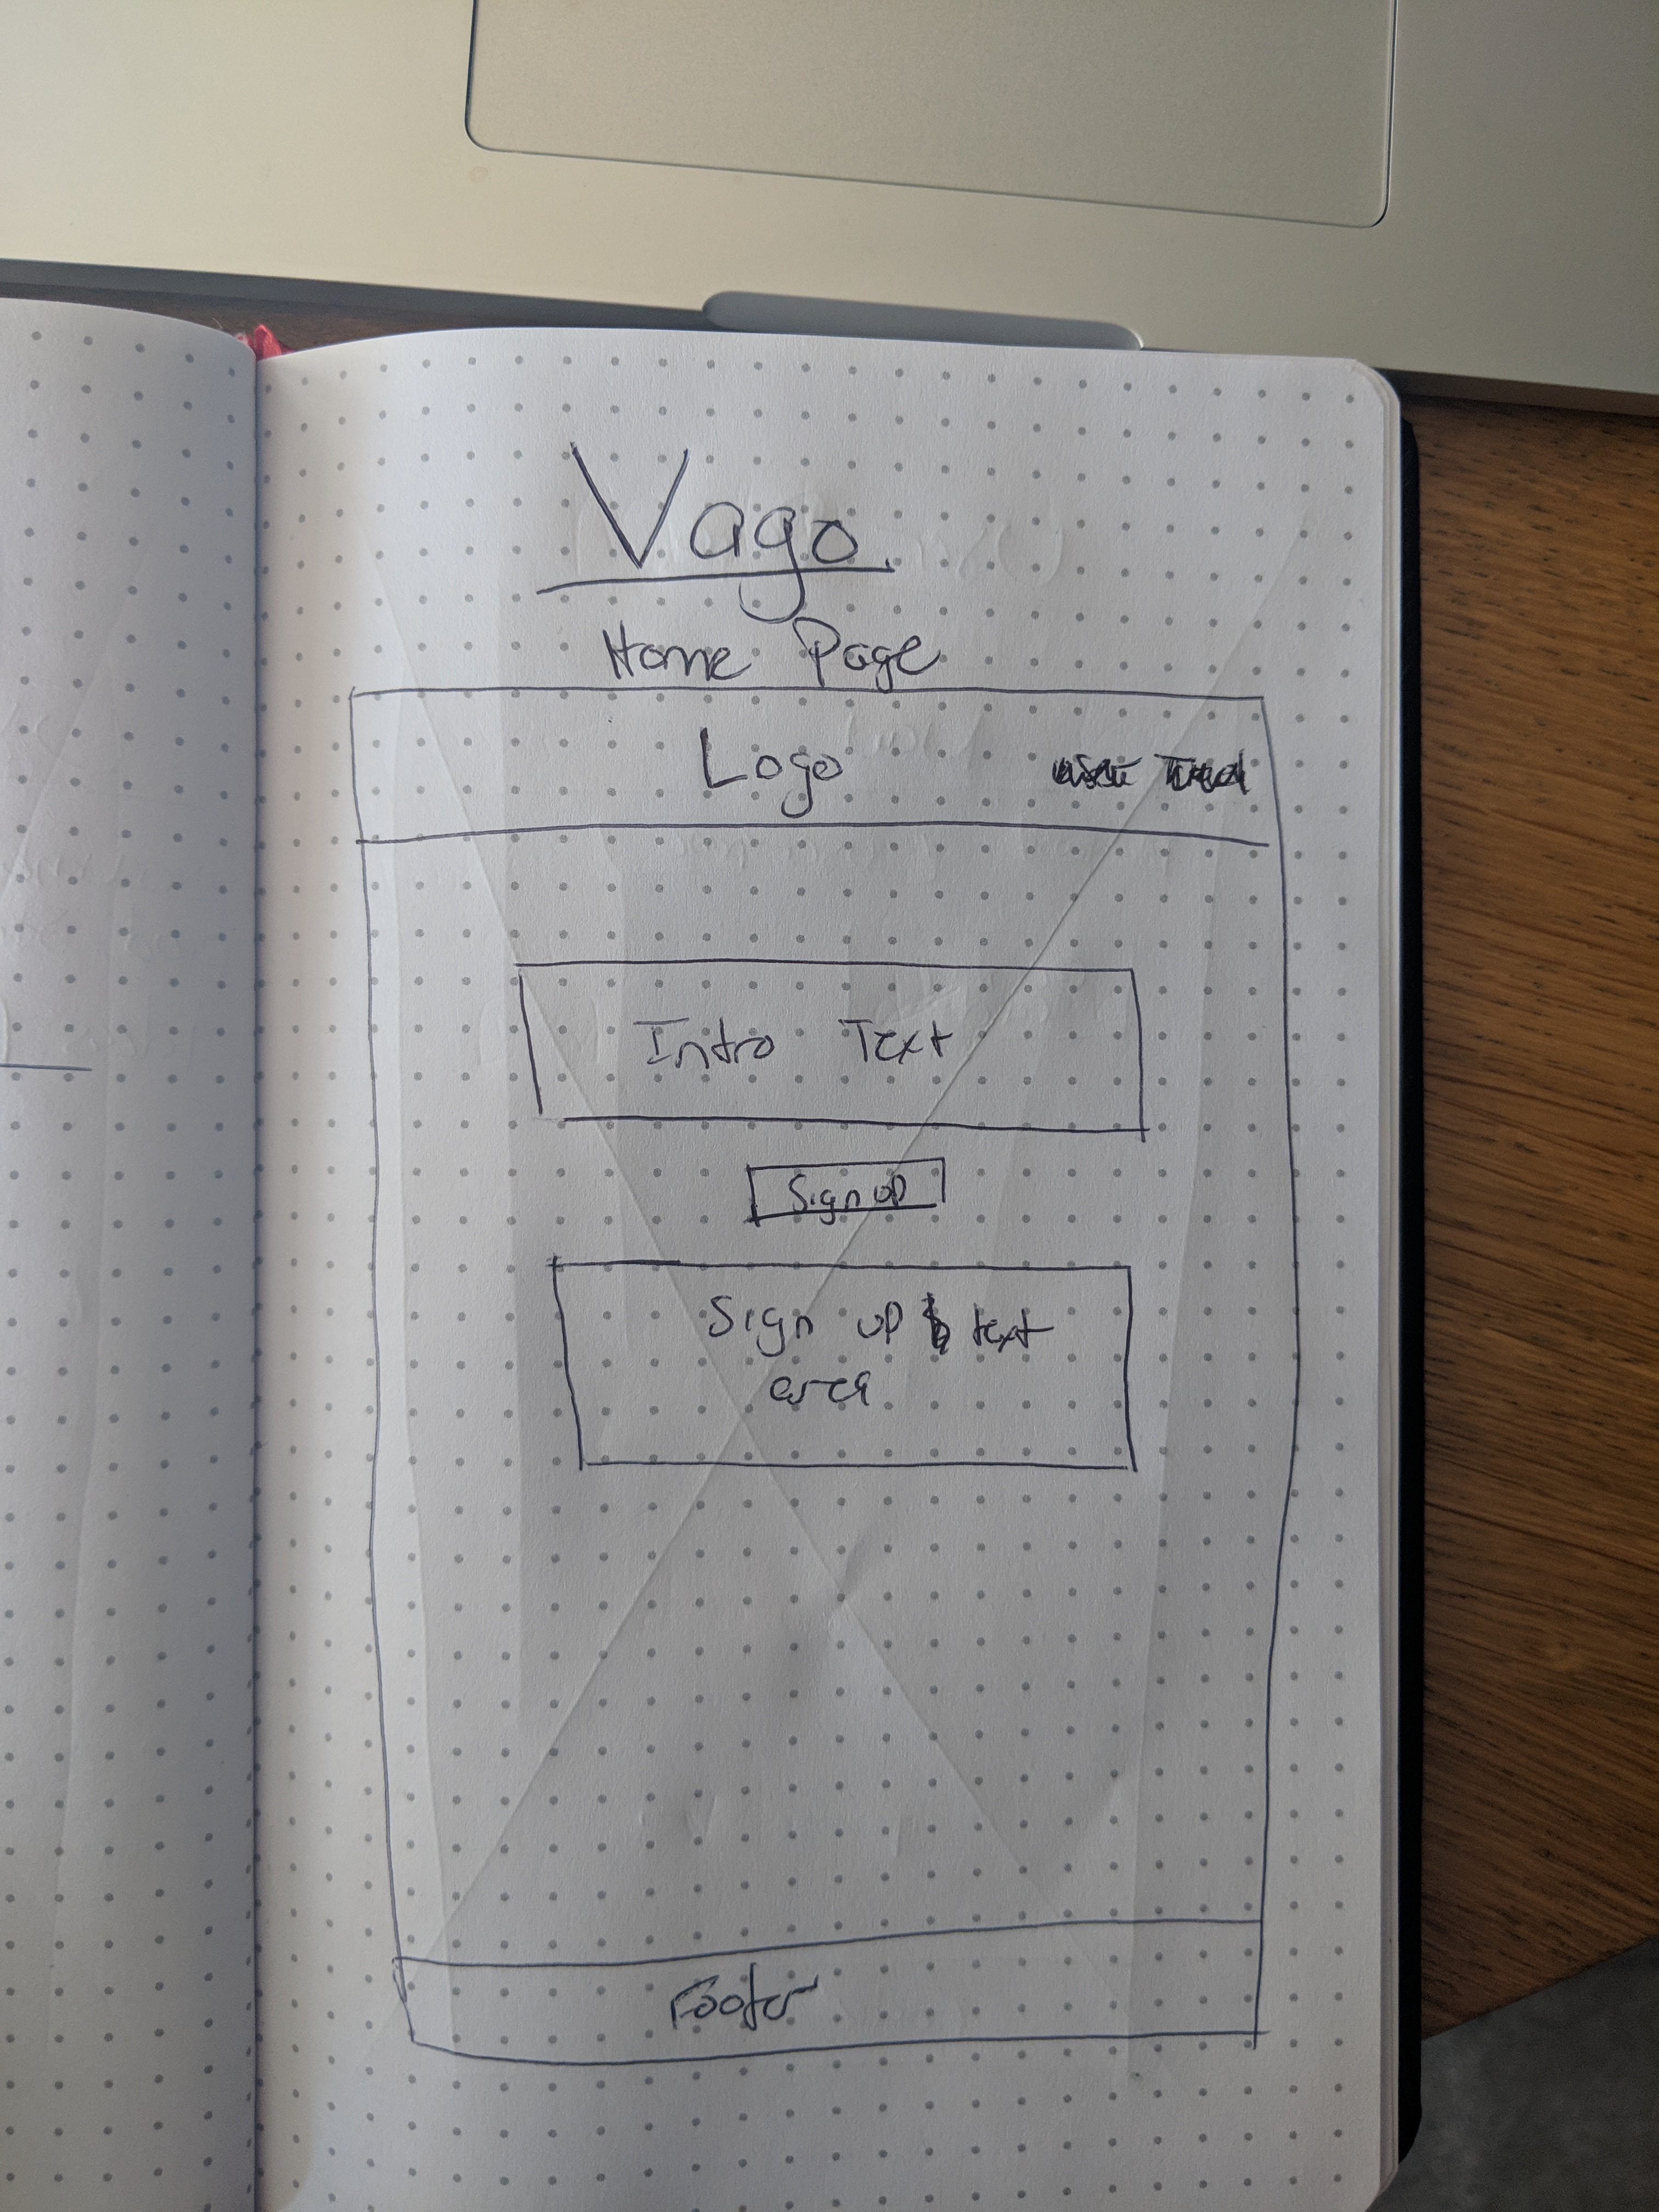 Vago.
Home Page
Logo
Intro Text
Sign up
Sign up text
area
Footer